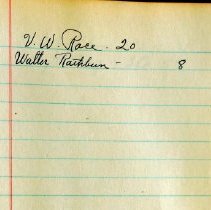 V. W. Race. 20
Walter Rathbun - 8